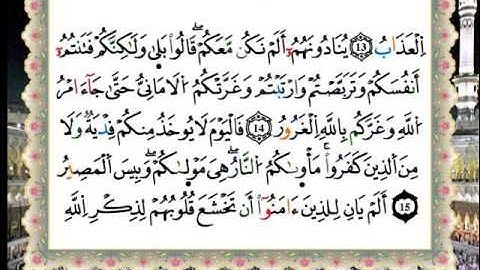 اِ۬لْعَذَابُ 13 يُنَادُونَهُمُۥٓ أَلَمْ نَكُن مَّعَكُمْۖ قَالُواْ بَلَىٰ وَلَٰكِنَّكُمْ فَتَنتُمُۥٓ
أَنفُسَكُمْ وَتَرَبَّصْتُمْ وَارْتَبْتُمْ وَغَرَّتْكُمُ اُ۬لَامَانِيُّ حَتَّىٰ جَآءَامْرُ
اُ۬للَّهِ وَغَرَّكُم بِاللَّهِ اِ۬لْغَرُورُ 14 فَالْيَوْمَ لَا يُوخَذُ مِنكُمْ فِدْيَةٌ وَلَا
مِنَ اَ۬لذِينَ كَفَرُواْۖ مَأْوَىٰكُمُ اُ۬لنَّارُۖ هِيَ مَوْلَىٰكُمْۖ وَبِيسَ اَ۬لْمَصِيرُ
15 أَلَمْ يَانِ لِلذِينَ ءَامَنُوٓاْ أَن تَخْشَعَ قُلُوبُهُمْ لِذِكْرِ اِ۬للَّهِ